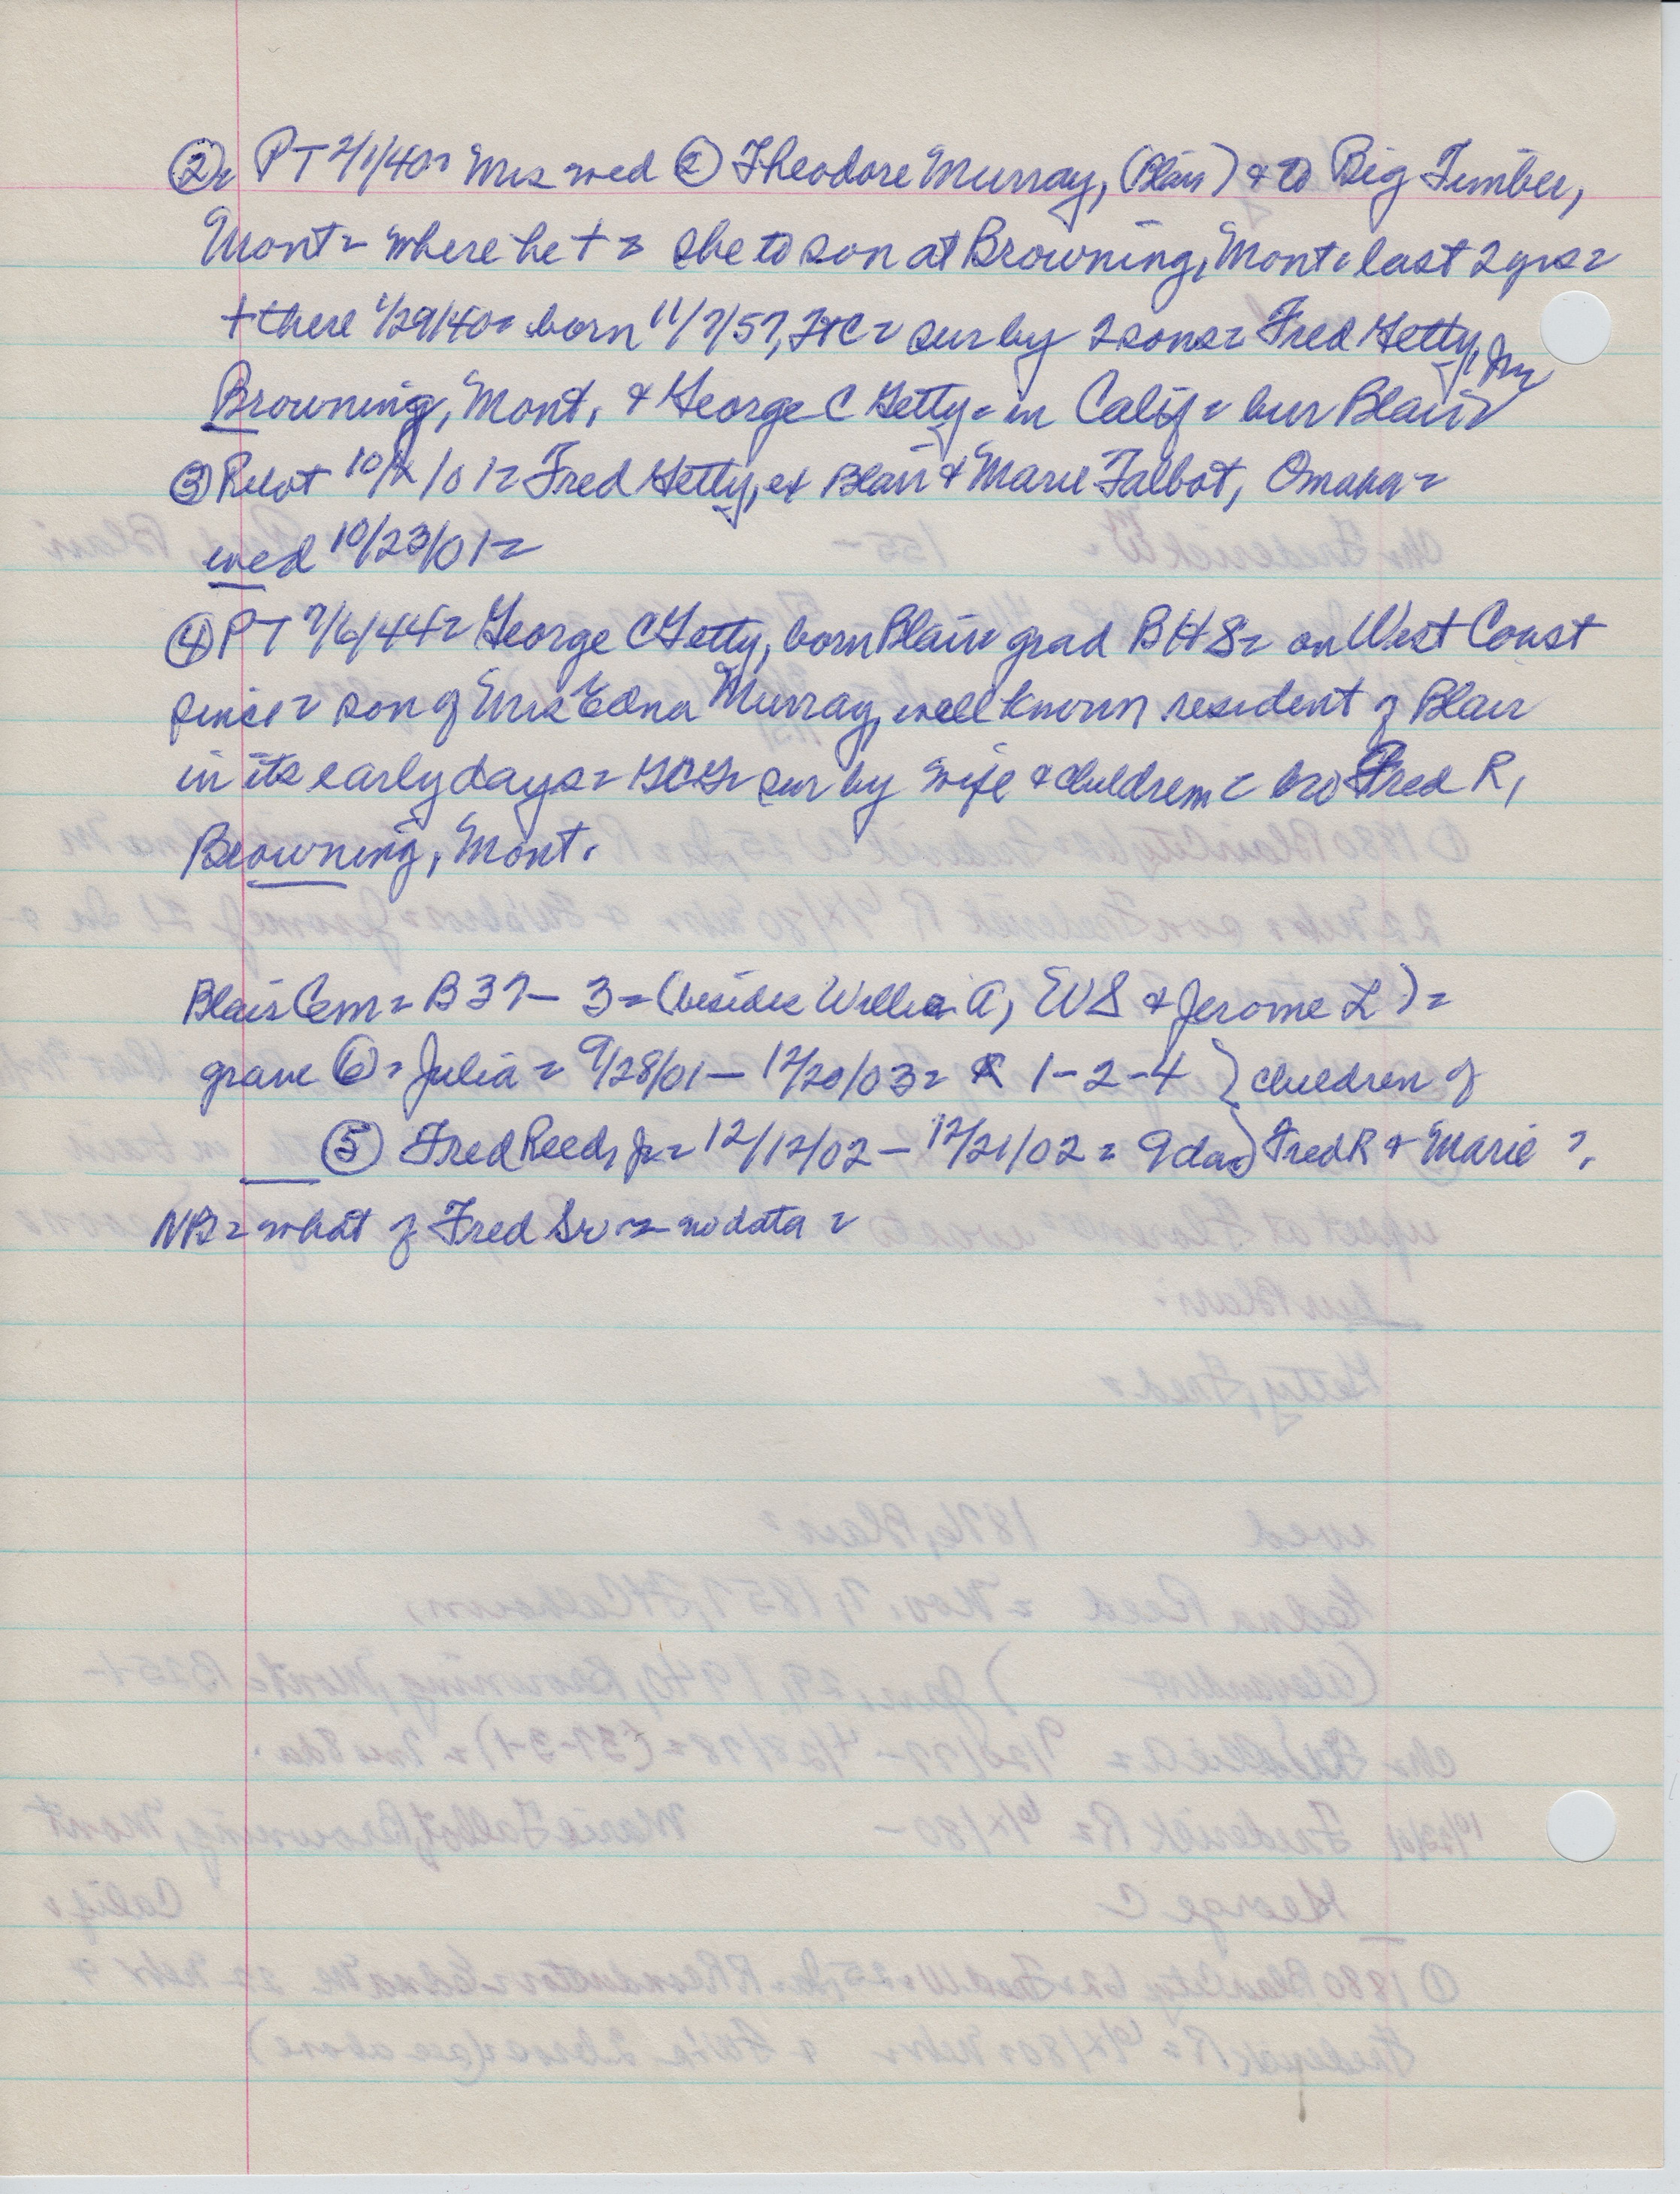 ②= PT 2/1/40= Mrs wed ② Theodore Murray, (Blair) & to Big Timber,
Mont= where he †= she to son at Browning, Mont= last 2 yrs=
† there 1/29/40= born 11/7/57, FtC= sur by 2 sons= Fred Getty, Jr,
Browning, Mont. & George C Getty= in Calif= bur Blair=
③ Pilot 10/x/01= Fred Getty, ex Blair & Marie Talbot, Omaha=
wed 10/23/01=
④ PT 7/6/44= George C Getty, born Blair= grad BHS= on West Coast
since= son of Mrs Edna Murray, well known resident of Blair
in its early days= sur by wife & children= bro Fred R,
Browning, Mont.
Blair Cem= B37-3=(beside Willie A, EVS & Jerome L)=
grave ⑥= Julia= 9/28/01-12/20/03= 1-2-4 } children of
⑤ Fred Reed, Jr= 12/12/02-12/21/02= 9da} Fred R & Marie ?.
NB= what of Fred Sr= no data=